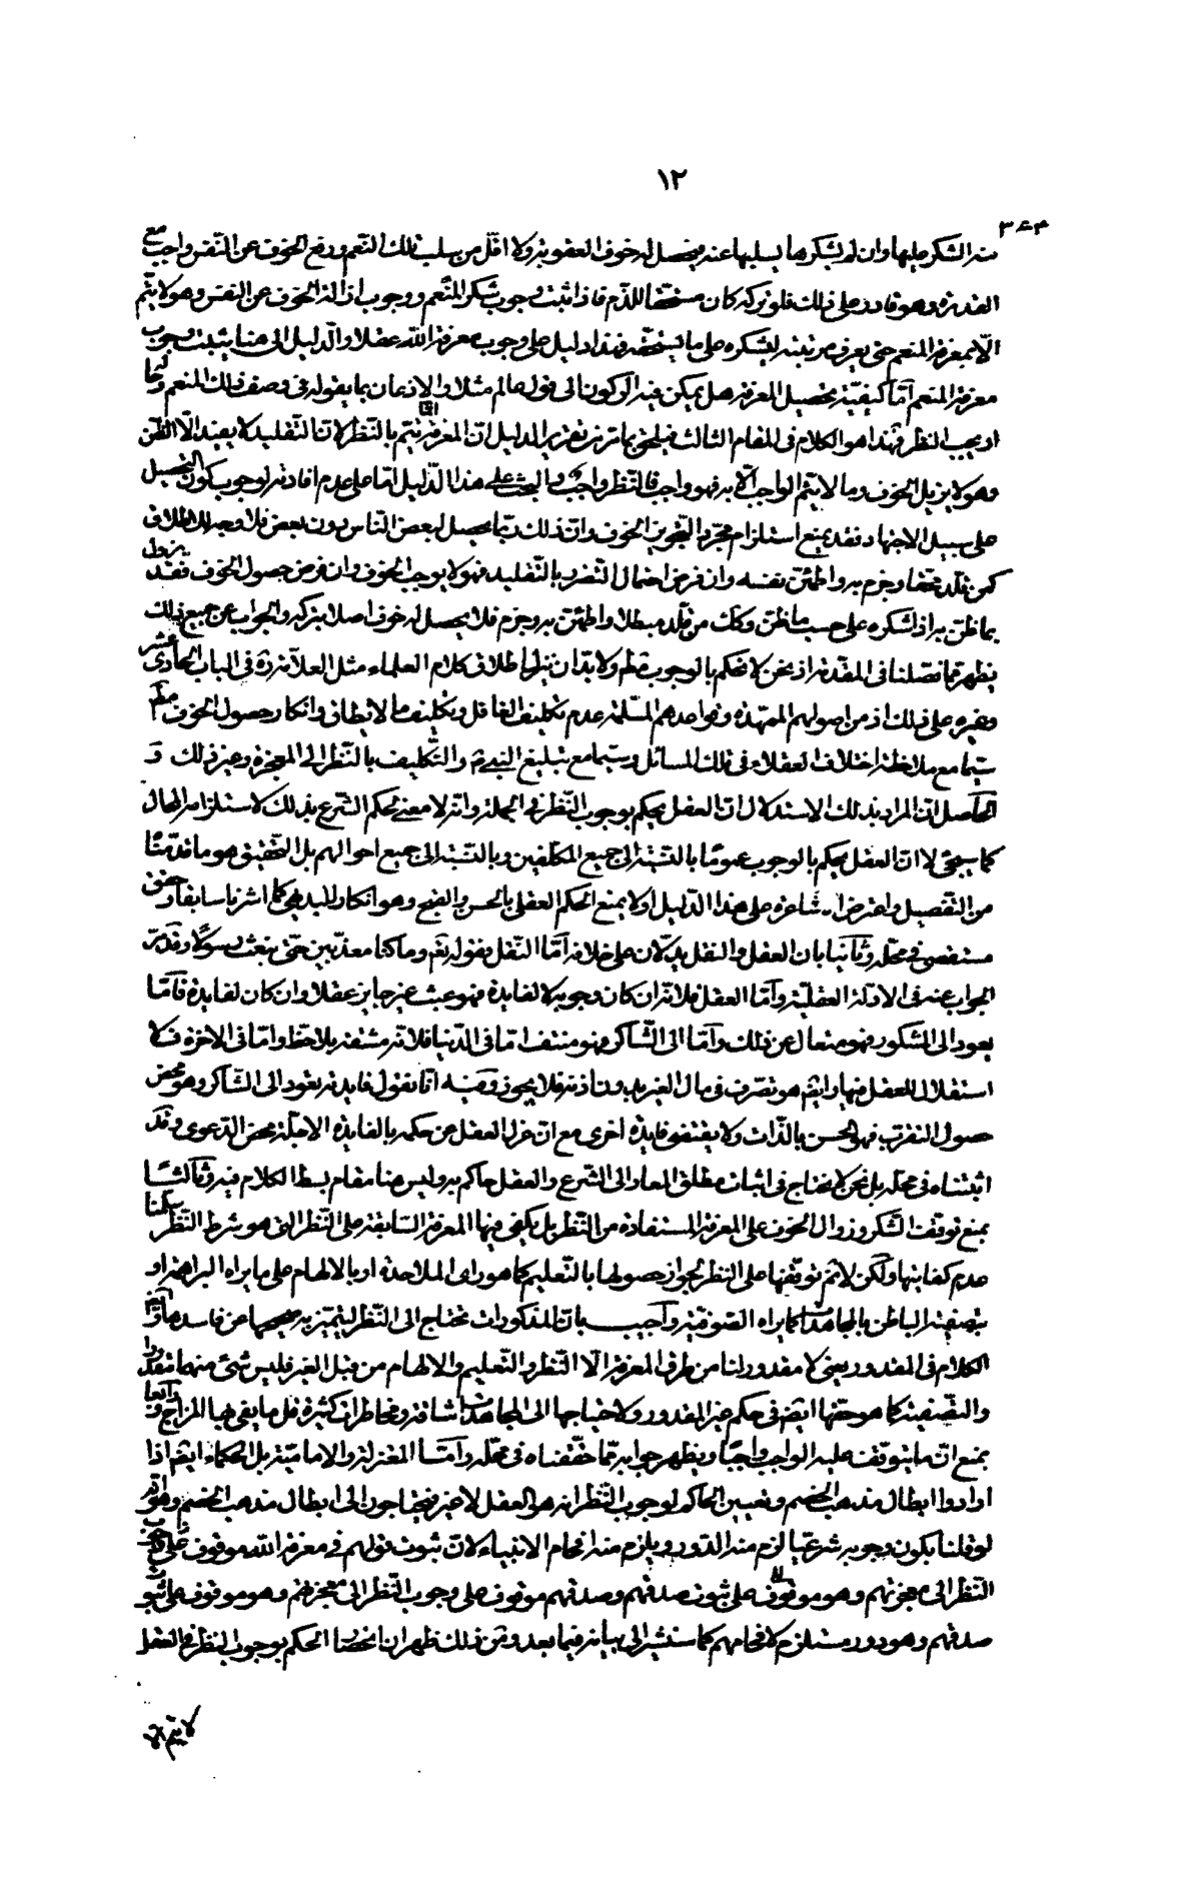 ١٢
٣٤٣
منه الشكر عليها وان لم يشكرها يسلبها عنه فيحصل له خوف العقوبة ولا اقل من سلب تلك النعم ودفع الخوف عن النفس واجب مع
القدرة وهو قادر على ذلك فلو تركه كان مستحقا للذم فاذا ثبت وجوب شكر المنعم ووجوب ازالة الخوف عن النفس وهو لا يتم
الا بمعرفة المنعم حتى يعرف مرتبته ليشكره على ما يستحقه فهذا دليل على وجوب معرفة الله عقلا والدليل الى هنا يثبت وجوب
معرفة المنعم اما كيفية تحصيل المعرفة هل يمكن فيه الركون الى قول عالم مثلا والاذعان بما يقوله في وصف ذلك المنعم
او يجب النظر فهذا هو الكلام في المقام الثالث فيلحق بما مر تقرير الدليل ان المعرفة يتم بالنظر لان التقليد لا يفيد الا الظن
وهو لا يزيل الخوف وما لا يتم الواجب الا به فهو واجب فالنظر واجب والبحث على هذا الدليل اما على عدم افادته لوجوب كون التحصيل
على سبيل الاجتهاد فقد يمنع استلزام مجرد التجويز الخوف وان ذلك ربما يحصل لبعض الناس دون بعض فلا وجه للاطلاق
كمن قلد محقا وجزم به واطمئن نفسه وان فرض احتمال التضرر بالتقليد فهو لا يوجب الخوف وان فرض حصول الخوف فقد يزول
بما ظن به اذا شكره على حسب ما ظن وكك من قلد مبطلا واطمئن به وجزم فلا يحصل له خوف اصلا بتركه والجواب عن جميع ذلك
يظهر مما فصلنا في المقدمة اذ نحن لا نحكم بالوجوب مطم ولا بد ان ينزل اطلاق كلام العلماء مثل العلامة ره في الباب الحادي عشر
وغيره على ذلك اذ من اصولهم الممهدة وقواعدهم المسلمة عدم تكليف الغافل وتكليف ما لا يطاق وانكار حصول الخوف مطم
سيما مع ملاحظة اختلاف العقلاء في تلك المسائل وسيما مع تبليغ النبي ص والتكليف بالنظر الى المعجزة وغير ذلك و
الحاصل ان المراد بذلك الاستدلال ان العقل يحكم بوجوب النظر في الجملة وانه لا معنى لحكم الشرع بذلك لاستلزامه المحال
كما سيجئ لا ان العقل يحكم بالوجوب عموما بالنسبة الى جميع المكلفين وبالنسبة الى جميع احوالهم بل التحقيق هو ما قدمنا
من التفصيل واعترض الاشاعرة على هذا الدليل اولا بمنع الحكم العقلي بالحسن والقبح وهو انكار للبديهي كما اشرنا سابقا وحقق
مستقصى في محله وثانيا بان العقل والنقل يدلان على خلافه اما النقل فقوله تعم وما كنا معذبين حتى نبعث رسولا وقد مر
الجواب عنه في الادلة العقلية واما العقل فلانه ان كان وجوبه لا لفايدة فهو عبث غير جايز عقلا وان كان لفايدة فاما
يعود الى المشكور فهو متعال عن ذلك واما الى الشاكر فهو منتف اما في الدنيا فلانه مشقة بلا حظ واما في الاخرة فلا
استقلال للعقل فيها وايضم هو تصرف في مال الغير بدون اذنه فلا يجوز وفيه انا نقول فايدته يعود الى الشاكر وهو محض
حصول التقرب فهو الحسن بالذات ولا يقتضي فايدة اخرى مع ان عزل العقل عن حكمه بالفايدة الاجلة محض الدعوى وقد
اثبتناه في محله بل نحن لا نحتاج في اثبات مطلق المعاد الى الشرع والعقل حاكم به وليس هنا مقام بسط الكلام فيه وثالثا
بمنع توقف الشكر وزوال الخوف على المعرفة المستفادة من النظر بل يكفي فيها المعرفة السابقة على النظر التي هو شرط النظر سلمنا
عدم كفايتها ولكن لا نم توقفها على النظر لجواز حصولها بالتعليم كما هو راى الملاحدة او بالالهام على ما يراه البراهمة او
بتصفية الباطن بالمجاهدات كما يراه الصوفية واجيب بان المذكورات تحتاج الى النظر ليتميز به صحيحها عن فاسدها
الكلام في المقدور يعني لا مقدور لنا من طرق المعرفة الا النظر والتعليم والالهام من قبل الغير فليس شئ منهما مقدورا
والتصفية كما هو حقها ايضم في حكم غير المقدور ولاحتياجها الى المجاهدات شاقة ومخاطرات كثيرة قل ما يفي بها المزاج ورابعا
بمنع ان ما يتوقف عليه الواجب واجبا ويظهر جوابه مما حققناه في محله واما المعتزلة والامامية بل الحكماء ايضم اذا
ارادوا ابطال مذهب الخصم وتعيين الحاكم لوجوب النظر انه هو العقل لا غير فيحتاجون الى ابطال مذهب الخصم وهو انه
لو قلنا بكون وجوبه شرعيا لزم منه الدور ويلزم منه افحام الانبياء لان ثبوت قولهم في معرفة الله موقوف على وجوب
النظر الى معجزتهم وهو موقوف على ثبوت صدقهم وصدقهم موقوف على وجوب النظر الى معجزتهم وهو موقوف على ثبوت
صدقهم وهو دور مستلزم لافحامهم كما سنشير الى بيانه فيما بعد ومن ذلك ظهر ان انحصار الحكم بوجوب النظر في العقل
لا يتم الا